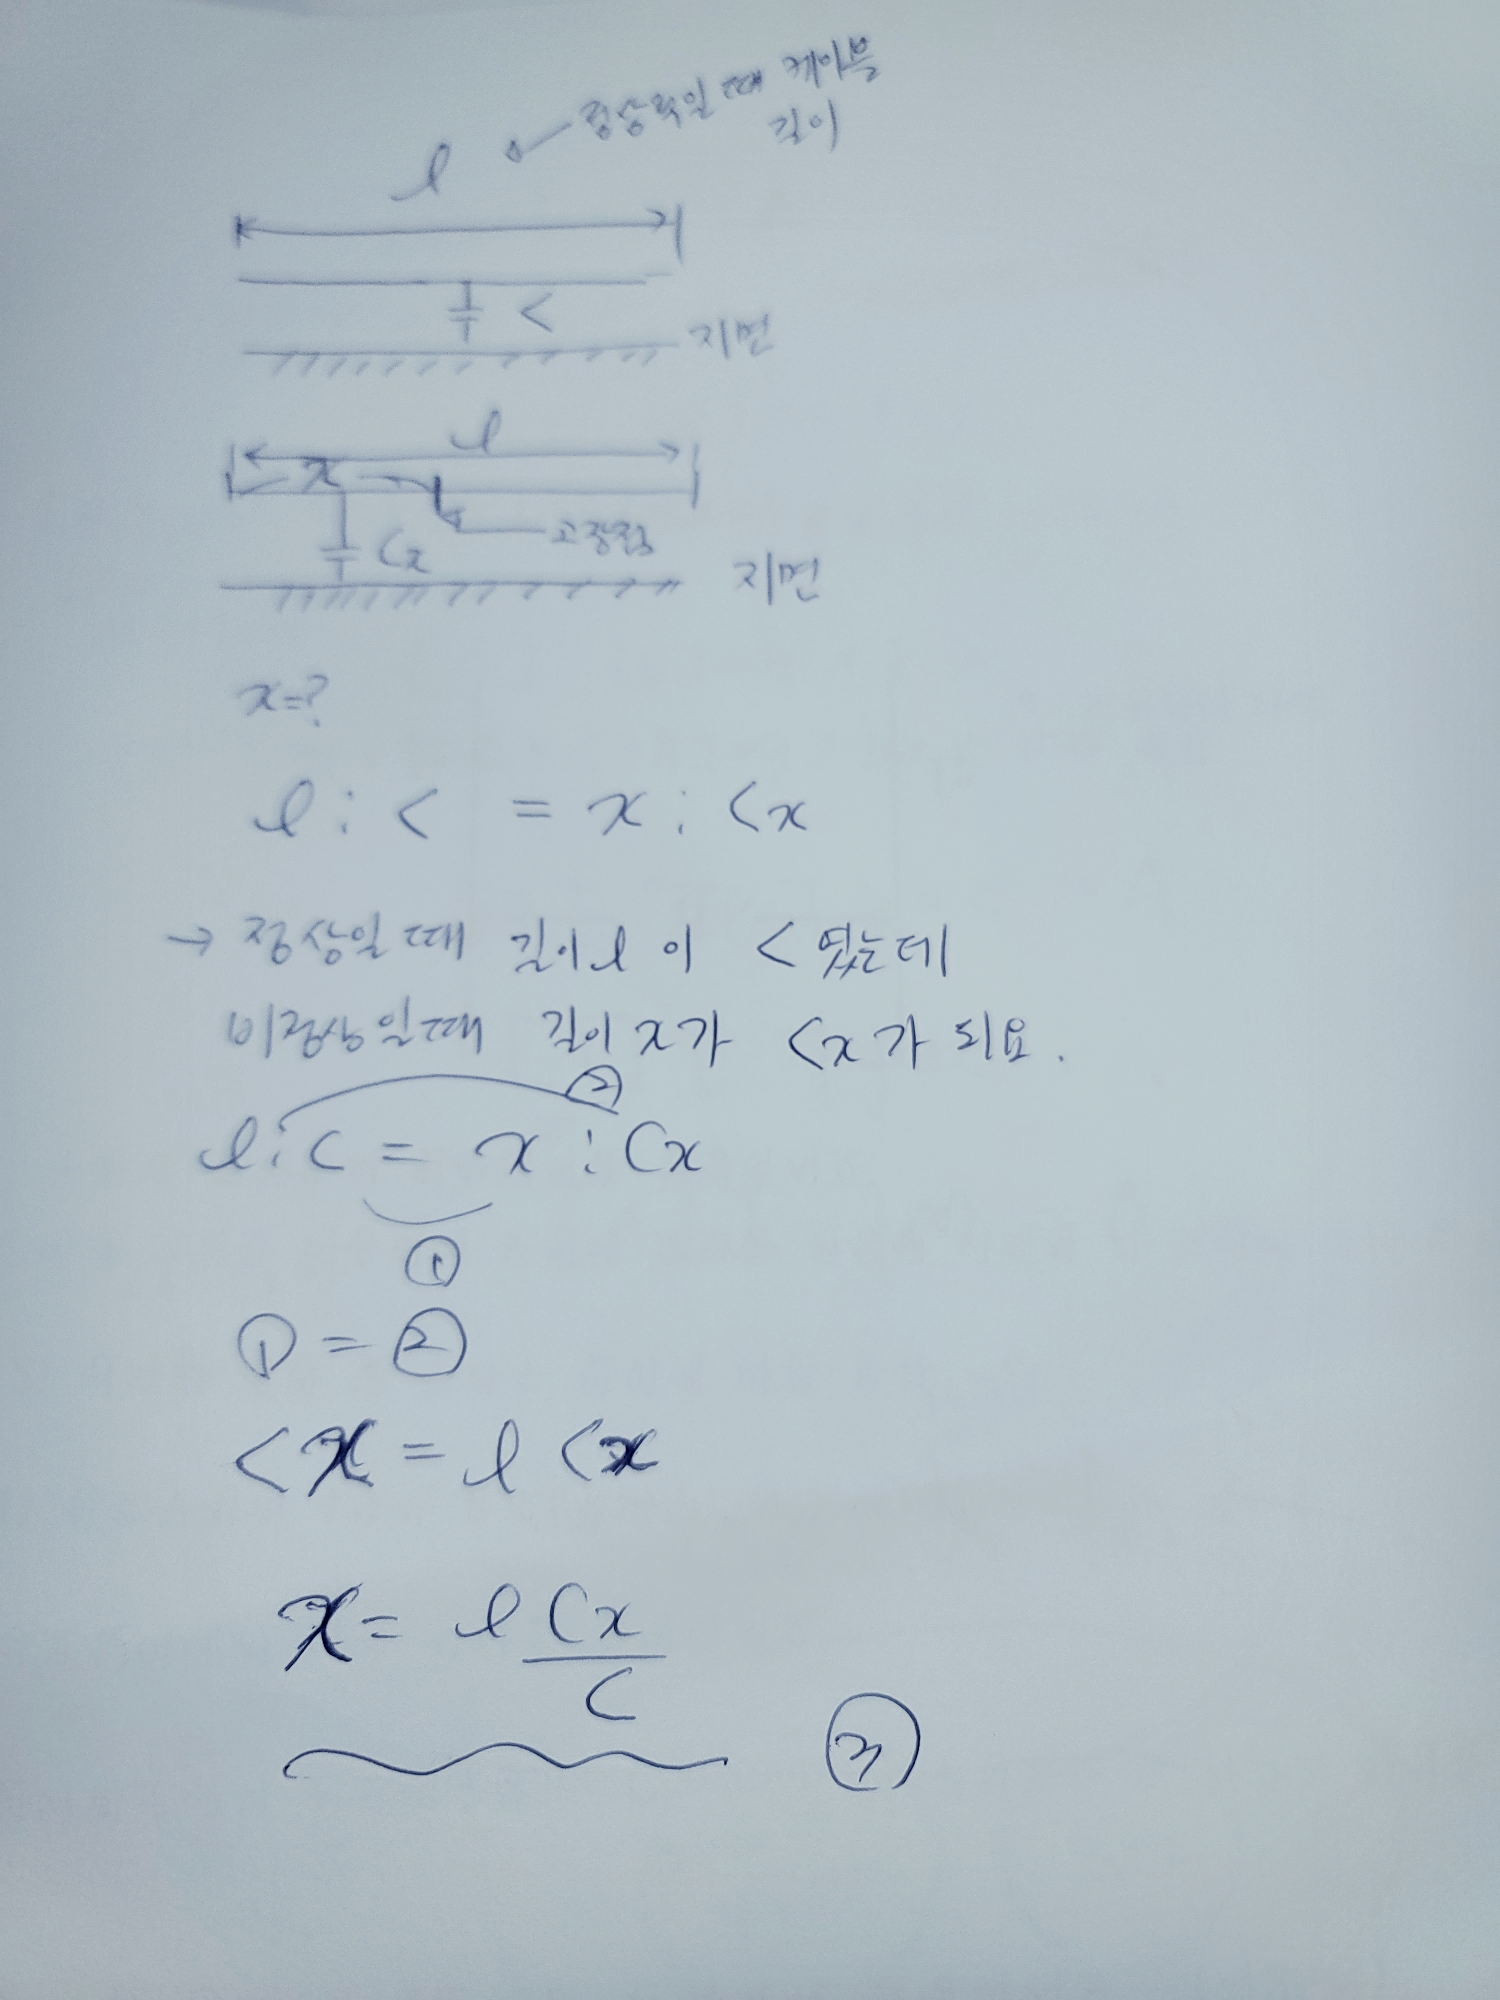 정상적일 때 케이블
길이
l
C
지면
l
x
고장점
Cx
지면
x=?
l : C = x : Cx
→ 정상일 때 길이 l 이 C 였는데
비정상일때 길이 x가 Cx가 되요.
②
l : C = x : Cx
①
① = ②
Cx = l Cx
x = l Cx
C
③